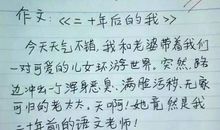 作文:《二十年后的我》
今天天气不错,我和老婆带着我们
一对可爱的儿女环游世界。突然,路
边冲出一个浑身恶臭、满脸污秽、无家
可归的老太太。天啊!她竟然是我
二十年前的语文老师!